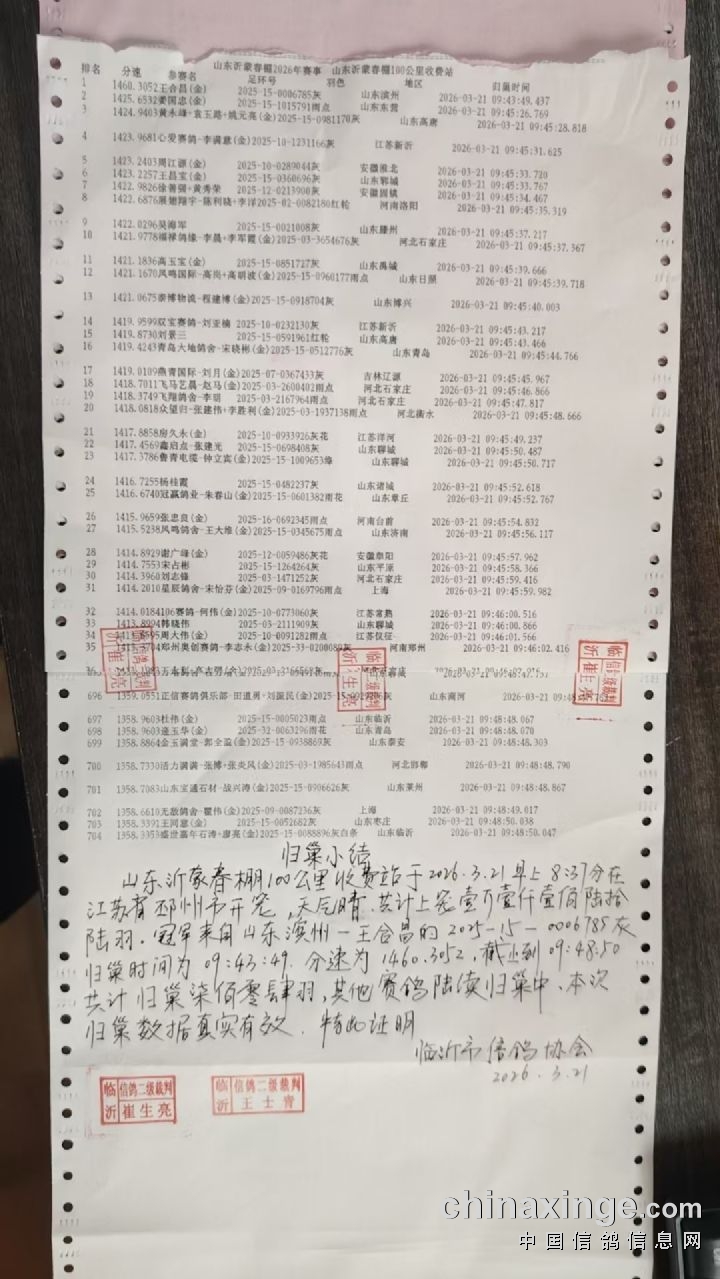 山东沂蒙春棚2026年赛事 山东沂蒙春棚100公里收费站
排名 分速 参赛名 足环号 羽色 地区 归巢时间
1 1460.3052王合昌(金) 2025-15-0006785灰 山东滨州 2026-03-21 09:43:49.437
2 1425.6532姜国志(金) 2025-15-1015791雨点 山东东营 2026-03-21 09:45:26.769
3 1424.9403黄永峰+袁玉路+姚元亮(金)2025-15-0981170灰 山东高唐 2026-03-21 09:45:28.818
4 1423.9681心爱赛鸽-李满意(金)2025-10-1231166灰 江苏新沂 2026-03-21 09:45:31.625
5 1423.2403周江源(金) 2025-10-0289044灰 安徽淮北 2026-03-21 09:45:33.720
6 1423.2257王昌宝(金) 2025-15-0360696灰 山东郓城 2026-03-21 09:45:33.767
7 1422.9826徐善强+黄秀荣 2025-12-0213900灰 安徽固镇 2026-03-21 09:45:34.467
8 1422.6876展翅翔宇-陈利晓+李洋2025-02-0082180红轮 河南洛阳 2026-03-21 09:45:35.319
9 1422.0296吴海军 2025-15-0021008灰 山东滕州 2026-03-21 09:45:37.217
10 1421.9778福禄鸽缘-李晨+李军霞(金)2025-03-3654676灰 河北石家庄 2026-03-21 09:45:37.367
11 1421.1836高玉宝(金) 2025-15-0851727灰 山东禹城 2026-03-21 09:45:39.666
12 1421.1670凤鸣国际-高岗+高明波(金)2025-15-0960177雨点 山东日照 2026-03-21 09:45:39.718
13 1421.0675泰博物流-程建博(金)2025-15-0918704灰 山东博兴 2026-03-21 09:45:40.003
14 1419.9599双宝赛鸽-刘亚楠 2025-10-0232130灰 江苏新沂 2026-03-21 09:45:43.217
15 1419.8730刘景三 2025-15-0591961红轮 山东高唐 2026-03-21 09:45:43.466
16 1419.4243青岛大地鸽舍-宋晓彬(金)2025-15-0512776灰 山东青岛 2026-03-21 09:45:44.766
17 1419.0109燕青国际-刘月(金)2025-07-0367433灰 吉林辽源 2026-03-21 09:45:45.967
18 1418.7011飞马艺晨-赵马(金)2025-03-2600402雨点 河北石家庄 2026-03-21 09:45:46.866
19 1418.3749飞翔鸽舍-李明 2025-03-2167964雨点 河北石家庄 2026-03-21 09:45:47.817
20 1418.0818众望归-张建伟+李胜利(金)2025-03-1937138雨点 河北衡水 2026-03-21 09:45:48.666
21 1417.8858房久永(金) 2025-10-0933926灰花 江苏洋河 2026-03-21 09:45:49.237
22 1417.4569鑫启点-张建光 2025-15-0698408灰 山东聊城 2026-03-21 09:45:50.487
23 1417.3786鲁青电缆-钟立宾(金)2025-15-1009653绛 山东聊城 2026-03-21 09:45:50.717
24 1416.7255杨桂霞 2025-15-0482237灰 山东诸城 2026-03-21 09:45:52.618
25 1416.6740冠赢鸽业-朱春山(金)2025-15-0601382雨花 山东章丘 2026-03-21 09:45:52.767
26 1415.9659张忠良(金) 2025-16-0692345雨点 河南台前 2026-03-21 09:45:54.832
27 1415.5238凤鸣鸽舍-王大维(金)2025-15-0345675雨点 山东济南 2026-03-21 09:45:56.117
28 1414.8929谢广峰(金) 2025-12-0059486灰花 安徽阜阳 2026-03-21 09:45:57.962
29 1414.7553宋占彬 2025-15-1264264灰 山东平原 2026-03-21 09:45:58.366
30 1414.3960刘志锋 2025-03-1471252灰 河北石家庄 2026-03-21 09:45:59.416
31 1414.2010星辰鸽舍-宋怡芬(金)2025-09-0169796雨点 上海 2026-03-21 09:45:59.982
32 1414.0184106赛鸽-何伟(金)2025-10-0773060灰 江苏常熟 2026-03-21 09:46:00.516
33 1413.8994韩晓伟 2025-03-2111909灰 山东聊城 2026-03-21 09:46:00.866
34 周大伟(金) 2025-10-0091282雨点 江苏仪征 2026-03-21 09:46:01.566
35 郑州奥创赛鸽-李志永(金)2025-33-0200089灰 河南郑州 2026-03-21 09:46:02.416
696 1359.0551正信赛鸽俱乐部-田道勇+刘振民(金) 山东商河 2026-03-21 09:48:47.
697 1358.9603杜伟(金) 2025-15-0005023雨点 山东临沂 2026-03-21 09:48:48.067
698 1358.9603逄玉华(金) 2025-32-0063296雨花 山东青岛 2026-03-21 09:48:48.070
699 1358.8864金玉满堂-郭全盈(金)2025-15-0938869灰 山东泰安 2026-03-21 09:48:48.303
700 1358.7330活力满满-张博+张炎风(金)2025-03-1985643雨点 河北邯郸 2026-03-21 09:48:48.790
701 1358.7083山东宝通石材-战兴涛(金)2025-15-0906626灰 山东莱州 2026-03-21 09:48:48.867
702 1358.6610无敌鸽舍-瞿伟(金)2025-09-0087236灰 上海 2026-03-21 09:48:49.017
703 1358.3391王同意(金) 2025-15-0052682灰 山东枣庄 2026-03-21 09:48:50.038
704 1358.3353盛世嘉年石涛+廖亮(金)2025-15-0088896灰白条 山东临沂 2026-03-21 09:48:50.
归巢小结
山东沂蒙春棚100公里收费站于2026.3.21早上8:37分在
江苏省邳州市开笼,天气晴.共计上笼壹万壹仟壹佰陆拾
陆羽.冠军来自山东滨州-王合昌的2025-15-0006785灰
归巢时间为09:43:49.分速为1460.3052,截止到09:48:50
共计归巢柒佰零肆羽,其他赛鸽陆续归巢中.本次
归巢数据真实有效.特此证明
临沂市信鸽协会
2026.3.21
临沂 信鸽二级裁判 崔生亮
临沂 信鸽二级裁判 王士青
chinaxinge.com
中国信鸽信息网